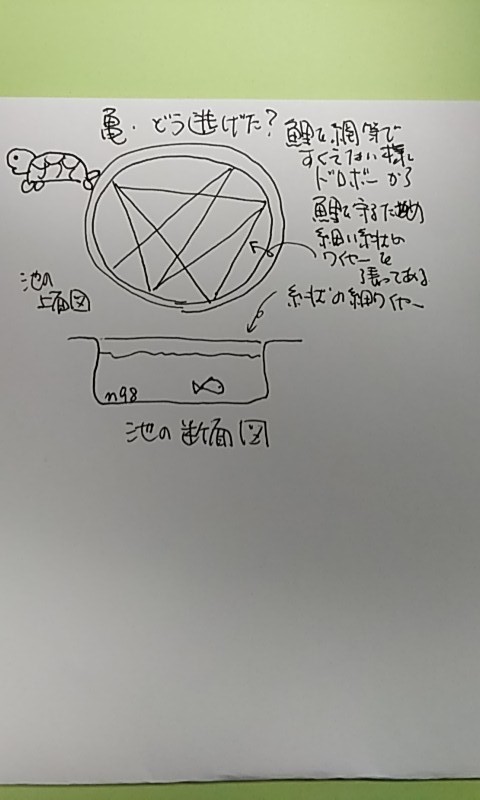 亀.どう逃げた?
鯉を網等で
すくえない様に
ドロボーから
鯉を守るため
細い糸状の
ワイヤーを
張ってある
糸状の細ワイヤー
池の
上面図
n98
池の断面図